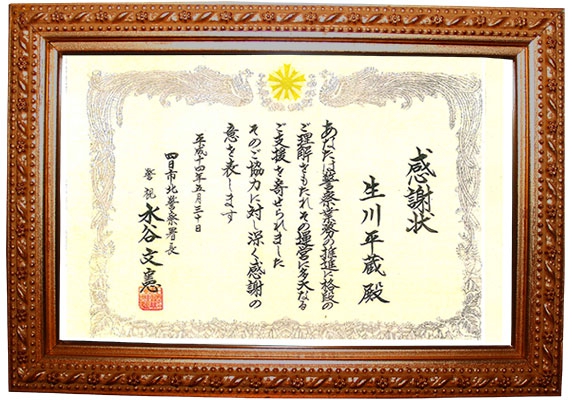 感謝状
生川平蔵殿
あなたは警察業務の推進に格段の
ご理解をもたれその運営に多大なる
ご支援を寄せられました
そのご協力に対し深く感謝の
意を表します
平成十四年五月三十日
四日市北警察署長
警視 水谷文憲